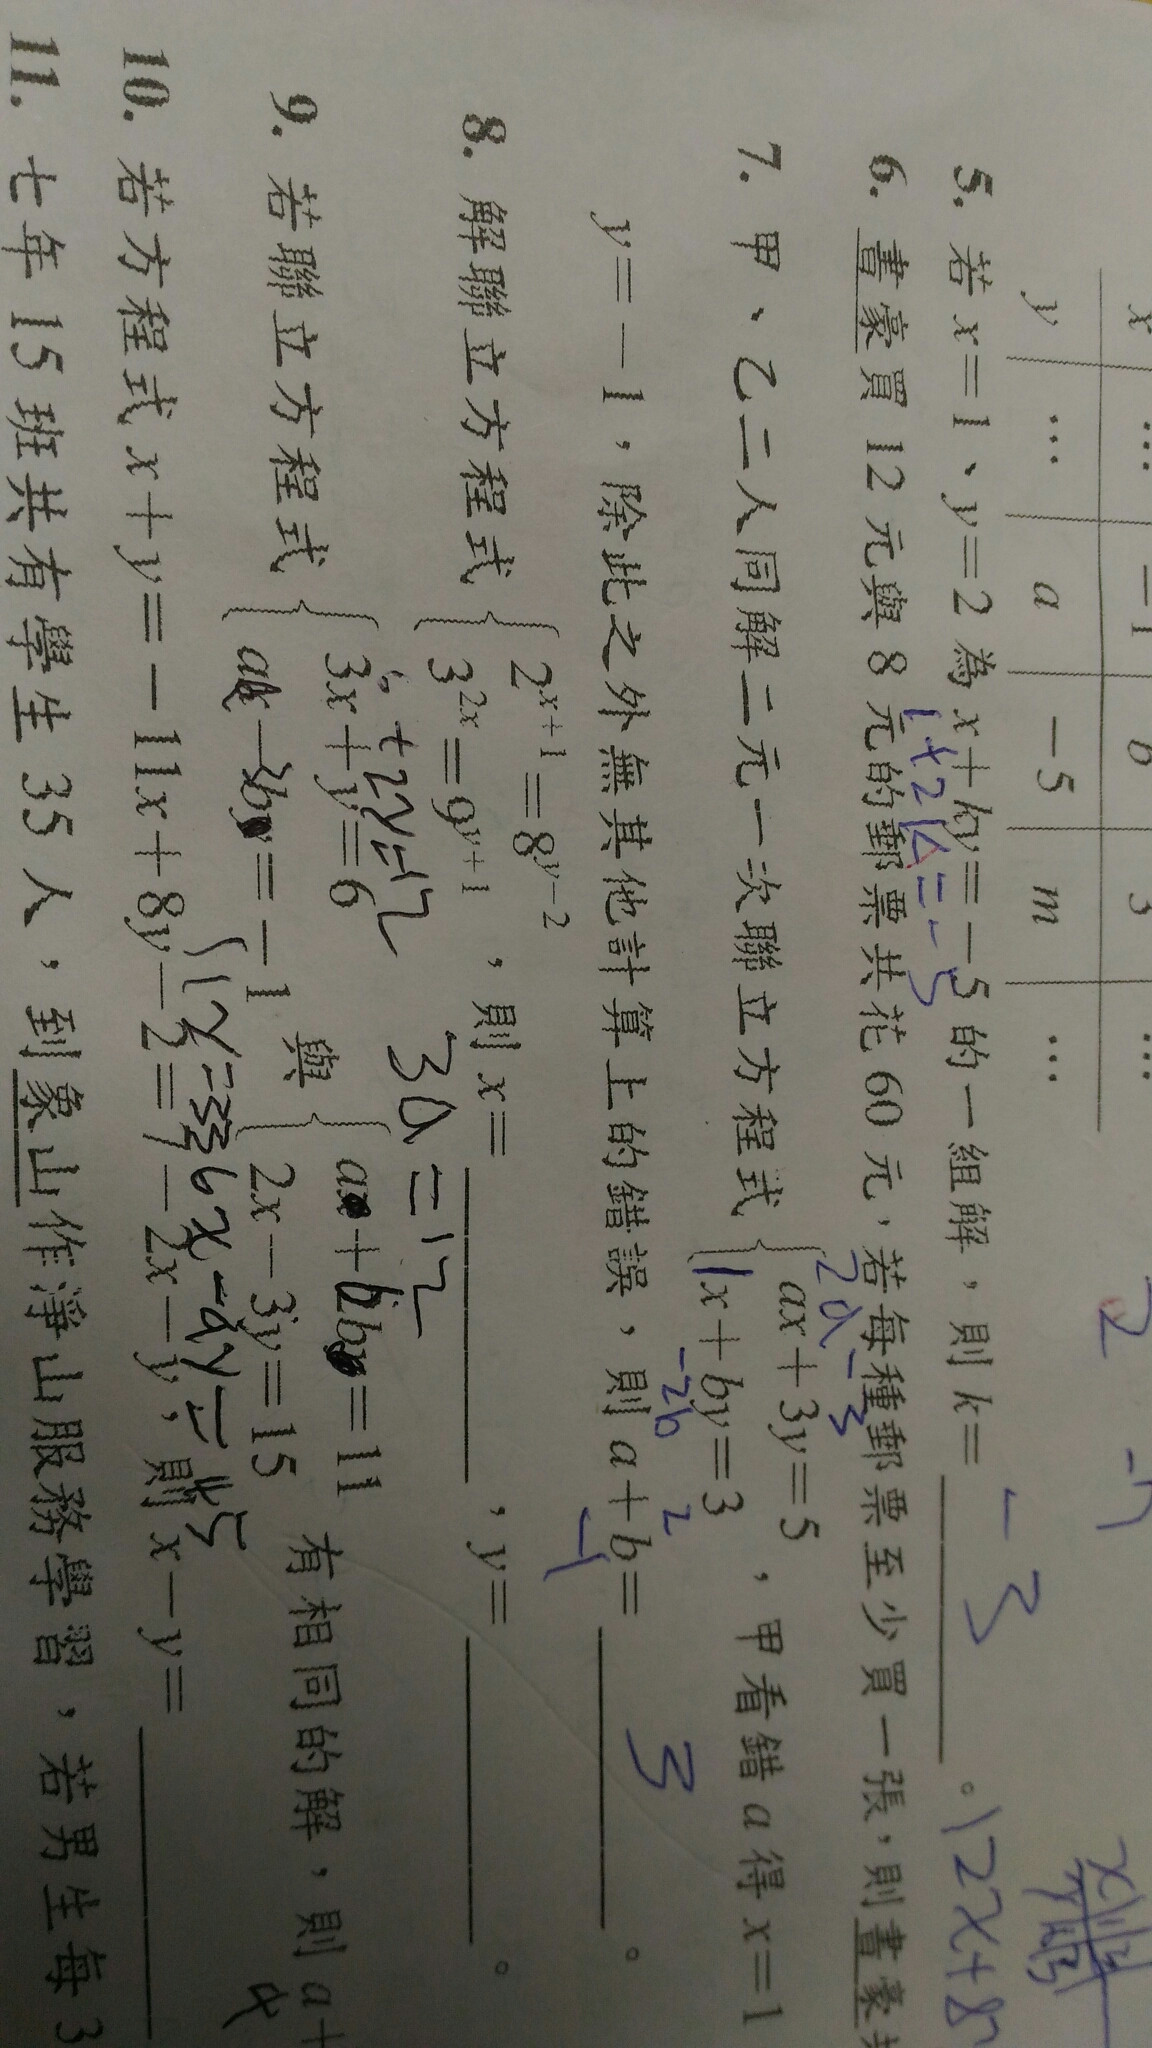 x … -1 b 3 …
y … a -5 m …
5. 若 x=1、y=2 為 x+ky=-5 的一組解,則 k= -3 。
1+2k=-5
12x+8
6. 書豪買 12 元與 8 元的郵票共花 60 元,若每種郵票至少買一張,則書豪
7. 甲、乙二人同解二元一次聯立方程式 { ax+3y=5
x+by=3 ,甲看錯 a 得 x=1
2a-3
-2b 2
-1
y=-1,除此之外無其他計算上的錯誤,則 a+b= 3 。
8. 解聯立方程式 { 2^{x+1}=8^{y-2}
3^{2x}=9^{y+1} ,則 x= ,y= 。
+2y=12
3a=12
9. 若聯立方程式 { 3x+y=6
ax-by=-1 與 { a+b=11
2x-3y=15 有相同的解,則 a+
10. 若方程式 x+y=-11x+8y-2=-2x-y,則 x-y=
11. 七年 15 班共有學生 35 人,到象山作淨山服務學習,若男生每 3